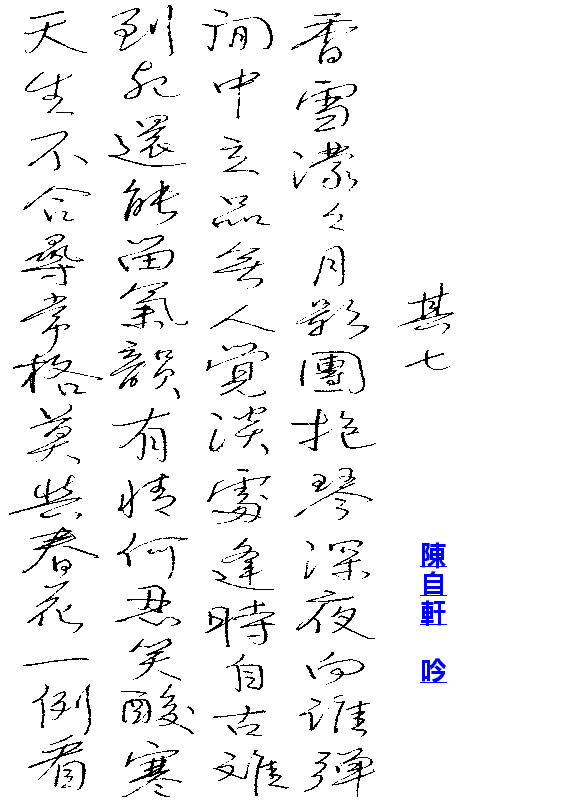 其七
陳自軒 吟
香雪濛々月影團抱琴深夜向誰彈
閒中立品無人覺淡處逢時自古難
到死還能留氣韻有情何忍笑酸寒
天生不合尋常格莫與春花一例看